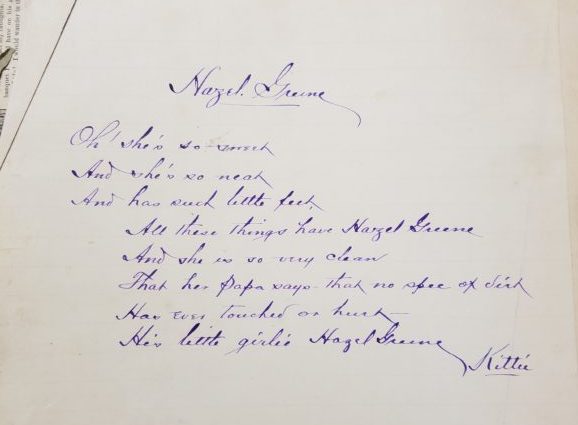 Hazel Greene
Oh! she's so sweet
And she's so neat
And has such little feet,
All these things have Hazel Greene
And she is so very clean
That her Papa says that no spec of dirt
Has ever touched or hurt
His little girlie Hazel Greene
Kittie